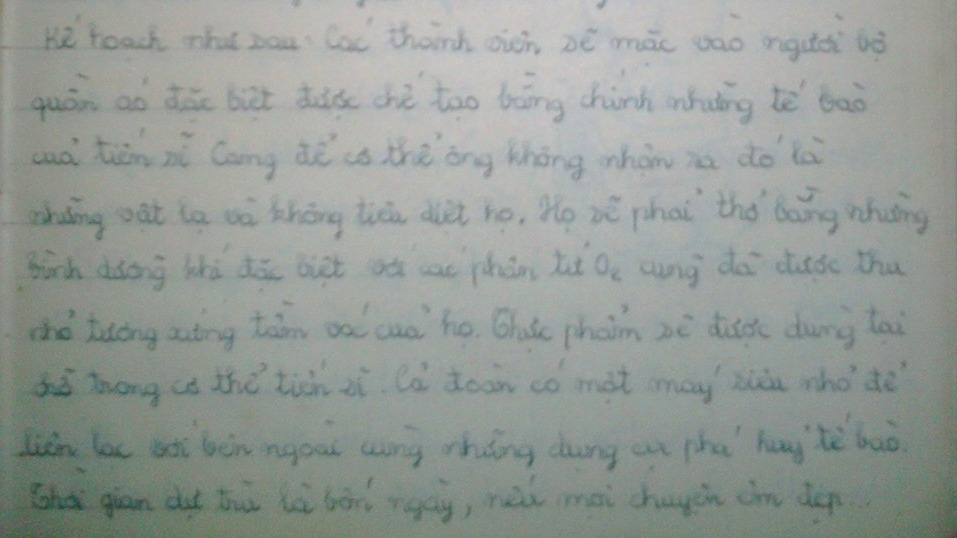 Kế hoạch như sau: Các thành viên sẽ mặc vào người bộ
quần áo đặc biệt được chế tạo bằng chính những tế bào
của tiến sĩ Camg để cơ thể ông không nhận ra đó là
những vật lạ và không tiêu diệt họ. Họ sẽ phải thở bằng những
bình dưỡng khí đặc biệt với các phân tử O₂ cũng đã được thu
nhỏ tương xứng tầm vóc của họ. Thực phẩm sẽ được dùng tại
chỗ trong cơ thể tiến sĩ. Cả đoàn có một máy siêu nhỏ để
liên lạc với bên ngoài cùng những dụng cụ phá huỷ tế bào.
Thời gian dự trù là bốn ngày, nếu mọi chuyện êm đẹp...